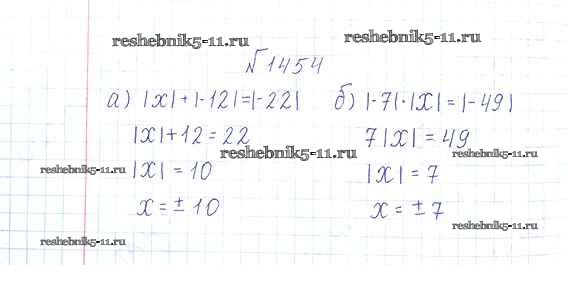 reshebnik5-11.ru reshebnik5-11.ru
№1454
а) |x|+|-12|=|-22| б) |-7|·|x|=|-49|
|x|+12=22 7|x|=49
reshebnik5-11.ru reshebnik5-11.ru
reshebnik5-11.ru |x|=10 |x|=7
x=±10 x=±7
reshebnik5-11.ru
reshebnik5-11.ru